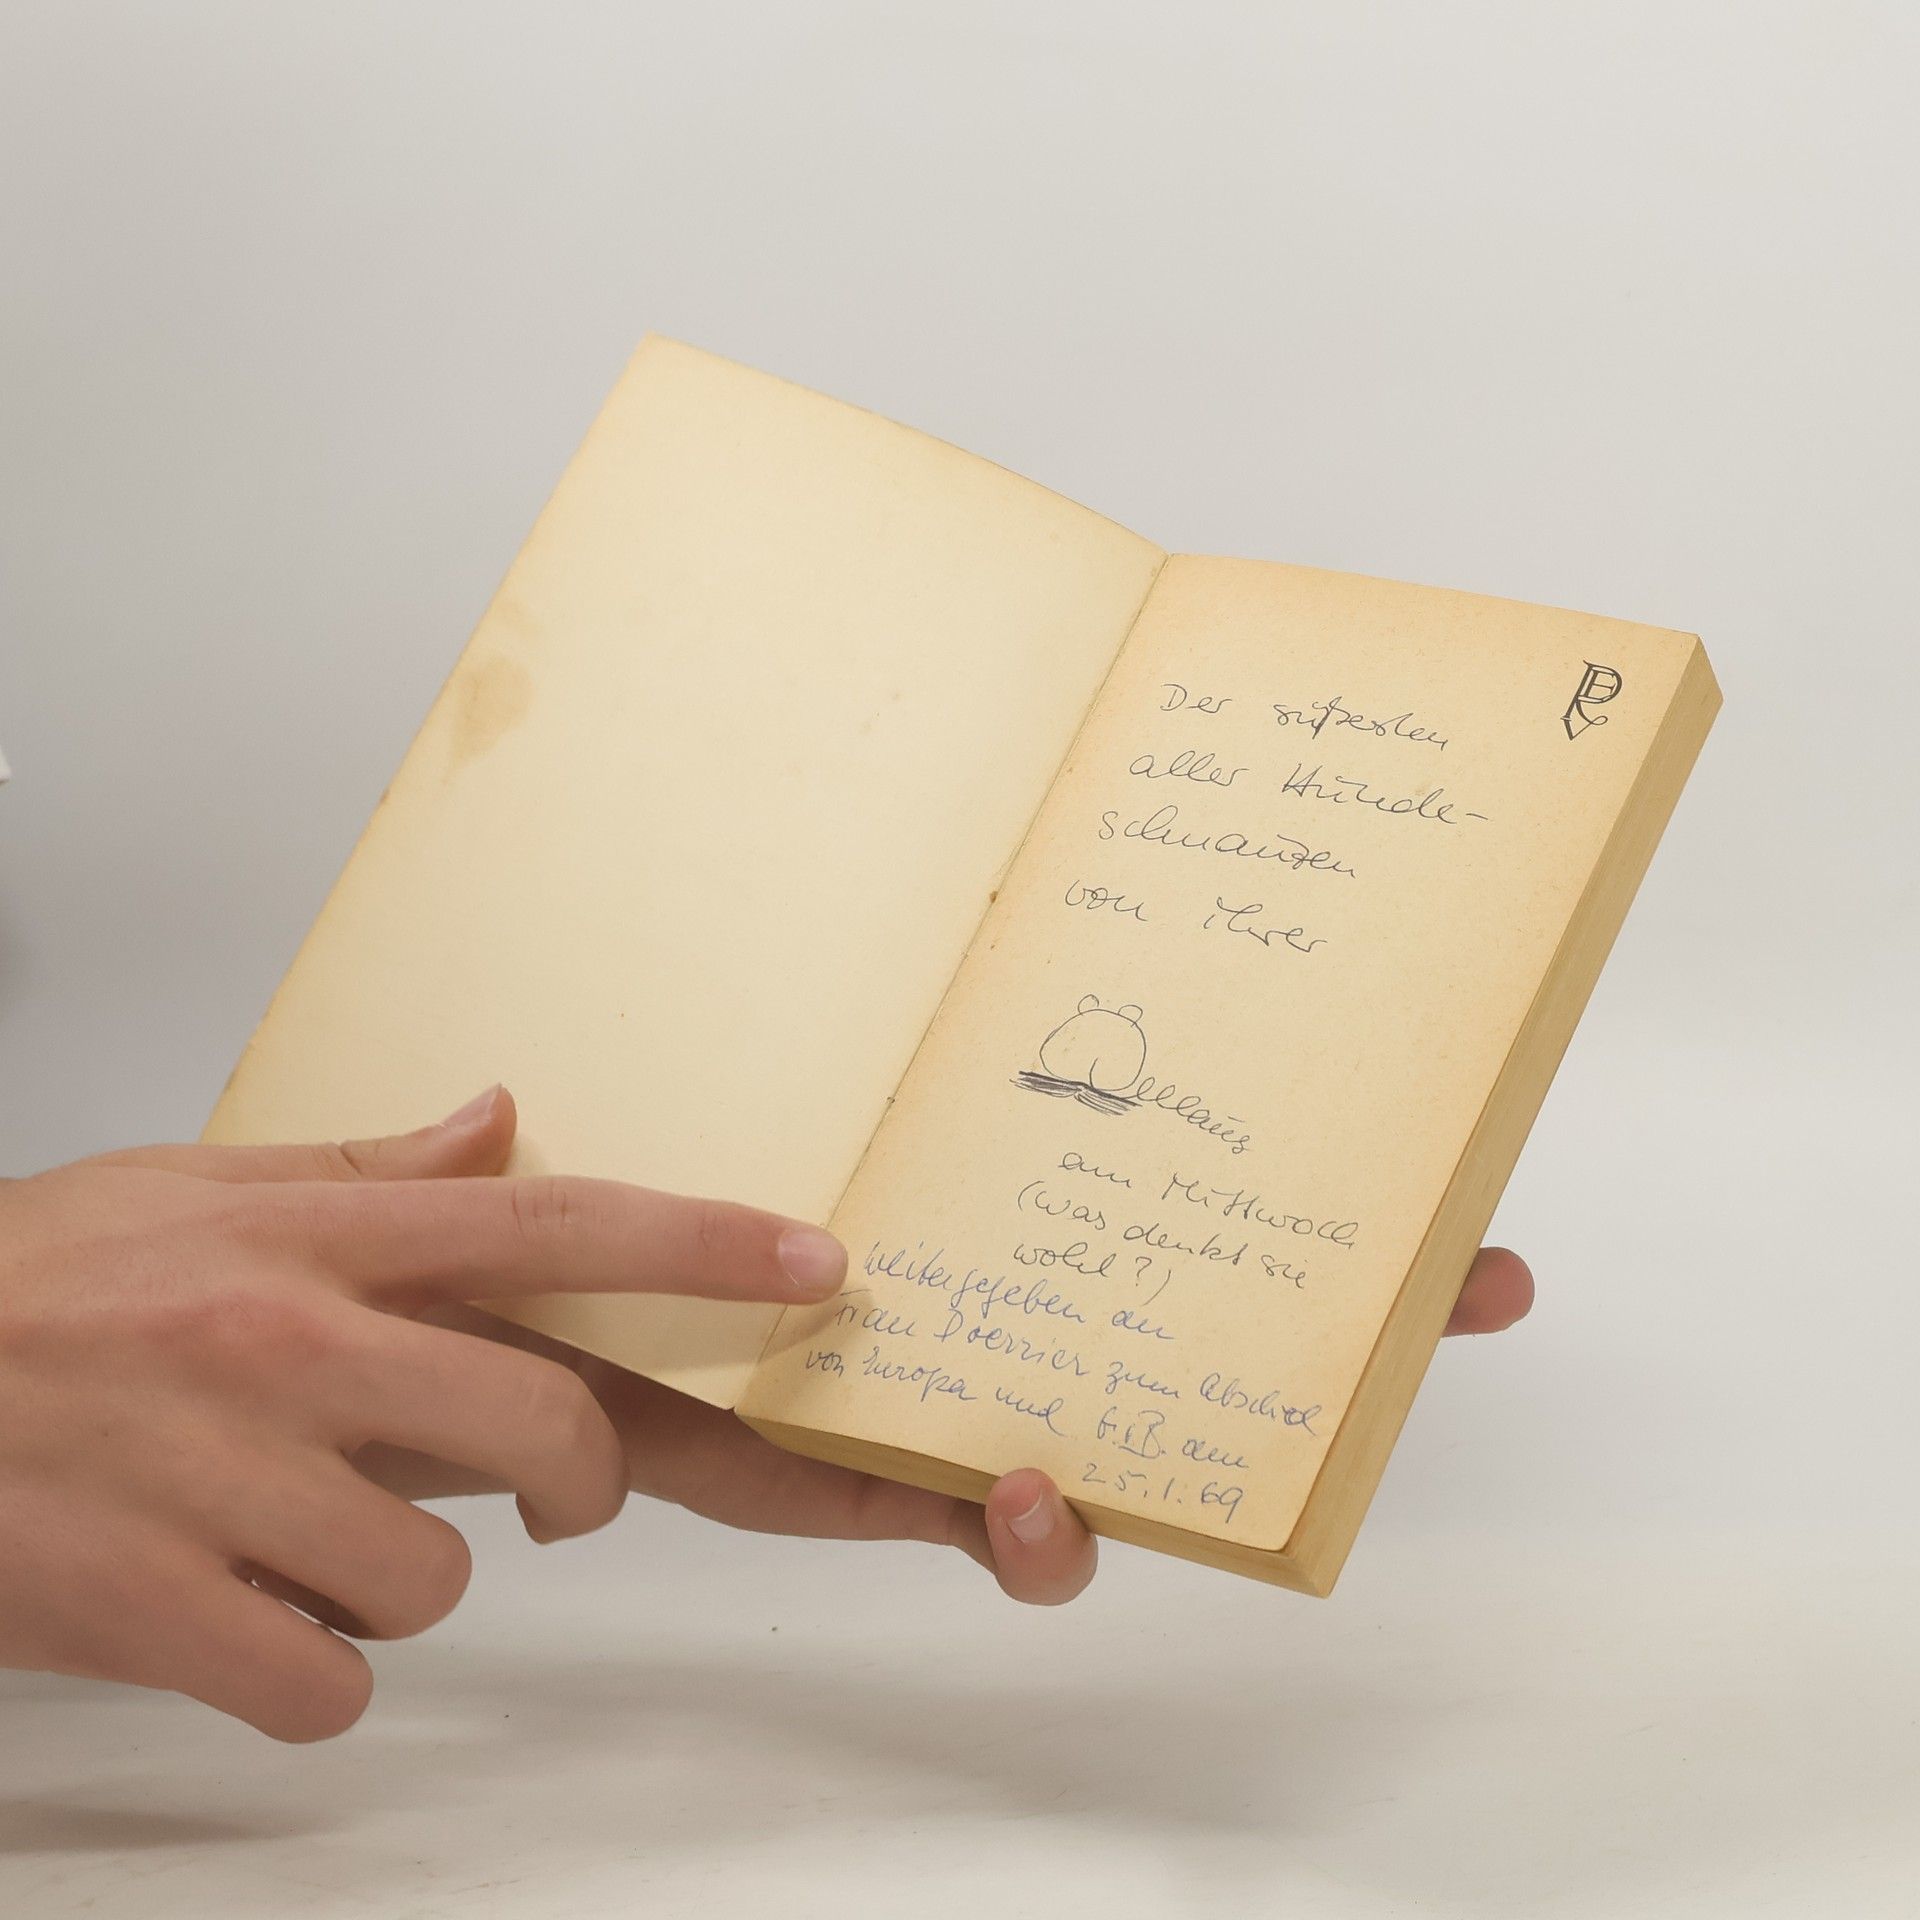 DEKV
Der süßesten
aller Hunde-
schnauzen
von ihrer
am Mittwoch
(was denkt sie
wohl?)
weitergegeben an
Frau Doerrier zum Abschied
von Europa und
am
25.1.69